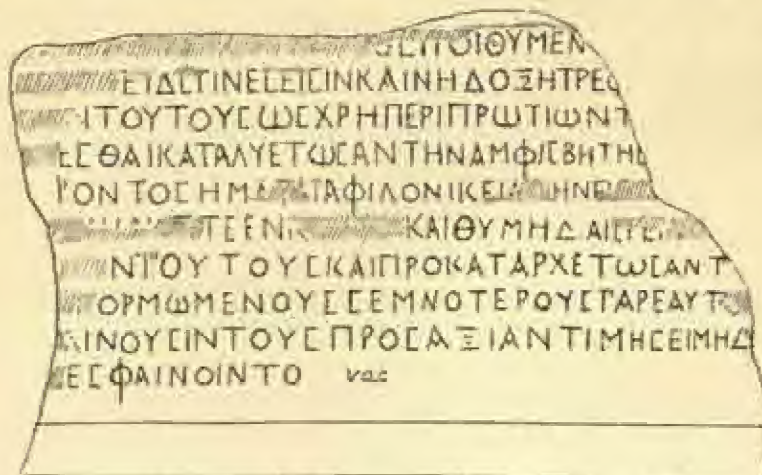 ΟΙΘΥΜΕΝ
ΕΙΔΕΤΙΝΕΣΕΙΣΙΝΚΑΙΝΗΔΟΞΗΤΡΕΦ
ΙΤΟΥΤΟΥΣΩΣΧΡΗΠΕΡΙΠΡΩΤΙΩΝΤ
ΕΣΘΑΙΚΑΤΑΛΥΕΤΩΣΑΝΤΗΝΑΜΦΙΣΒΗΤΗΣ
ΟΝΤΟΣΗΜ ΤΑΦΙΛΟΝΙΚΕΙ ΗΝΕ
ΤΕΕΝ ΚΑΙΘΥΜΗΔΑΙ
ΝΤΟΥΤΟΥΣΚΑΙΠΡΟΚΑΤΑΡΧΕΤΩΣΑΝΤ
ΤΟΡΜΩΜΕΝΟΥΣΣΕΜΝΟΤΕΡΟΥΣΓΑΡΕΑΥΤ
ΙΝΟΥΣΙΝΤΟΥΣΠΡΟΣΑΞΙΑΝΤΙΜΗΣΕΙΜΗΔ
ΕΣΦΑΙΝΟΙΝΤΟ vac